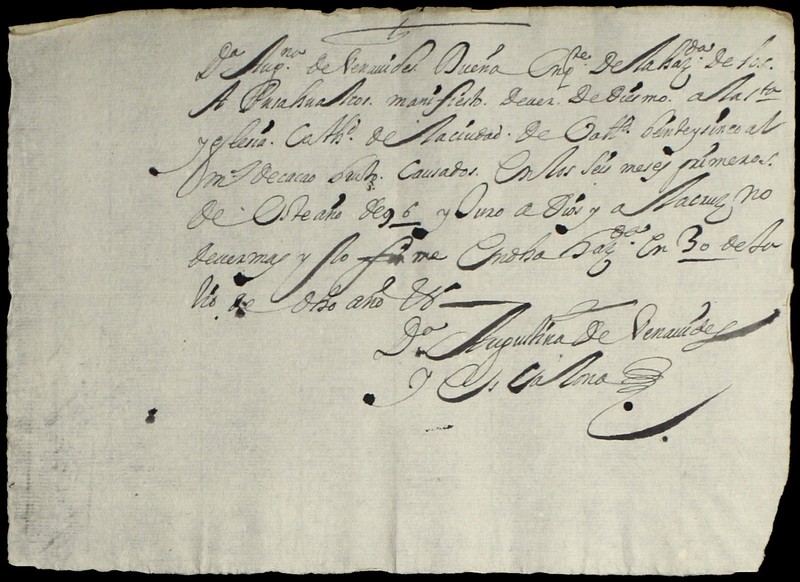 Dª Augna de Venauides. Dueña enpte. De la hazda de los.
A Purahualcos. manifiesto. dever. de diesmo. a la sta
yglesia. Cathl. de la ciudad. de Vallid beinte y sinco al
ms. de cacao Causados. En los seis meses primeros.
de este año de 96 y Juro a Dios y a la cruz no
dever mas y lo firme en dha hazda. En 30 de Ju
lio de dho año
Dª Augustina de Venauides
y